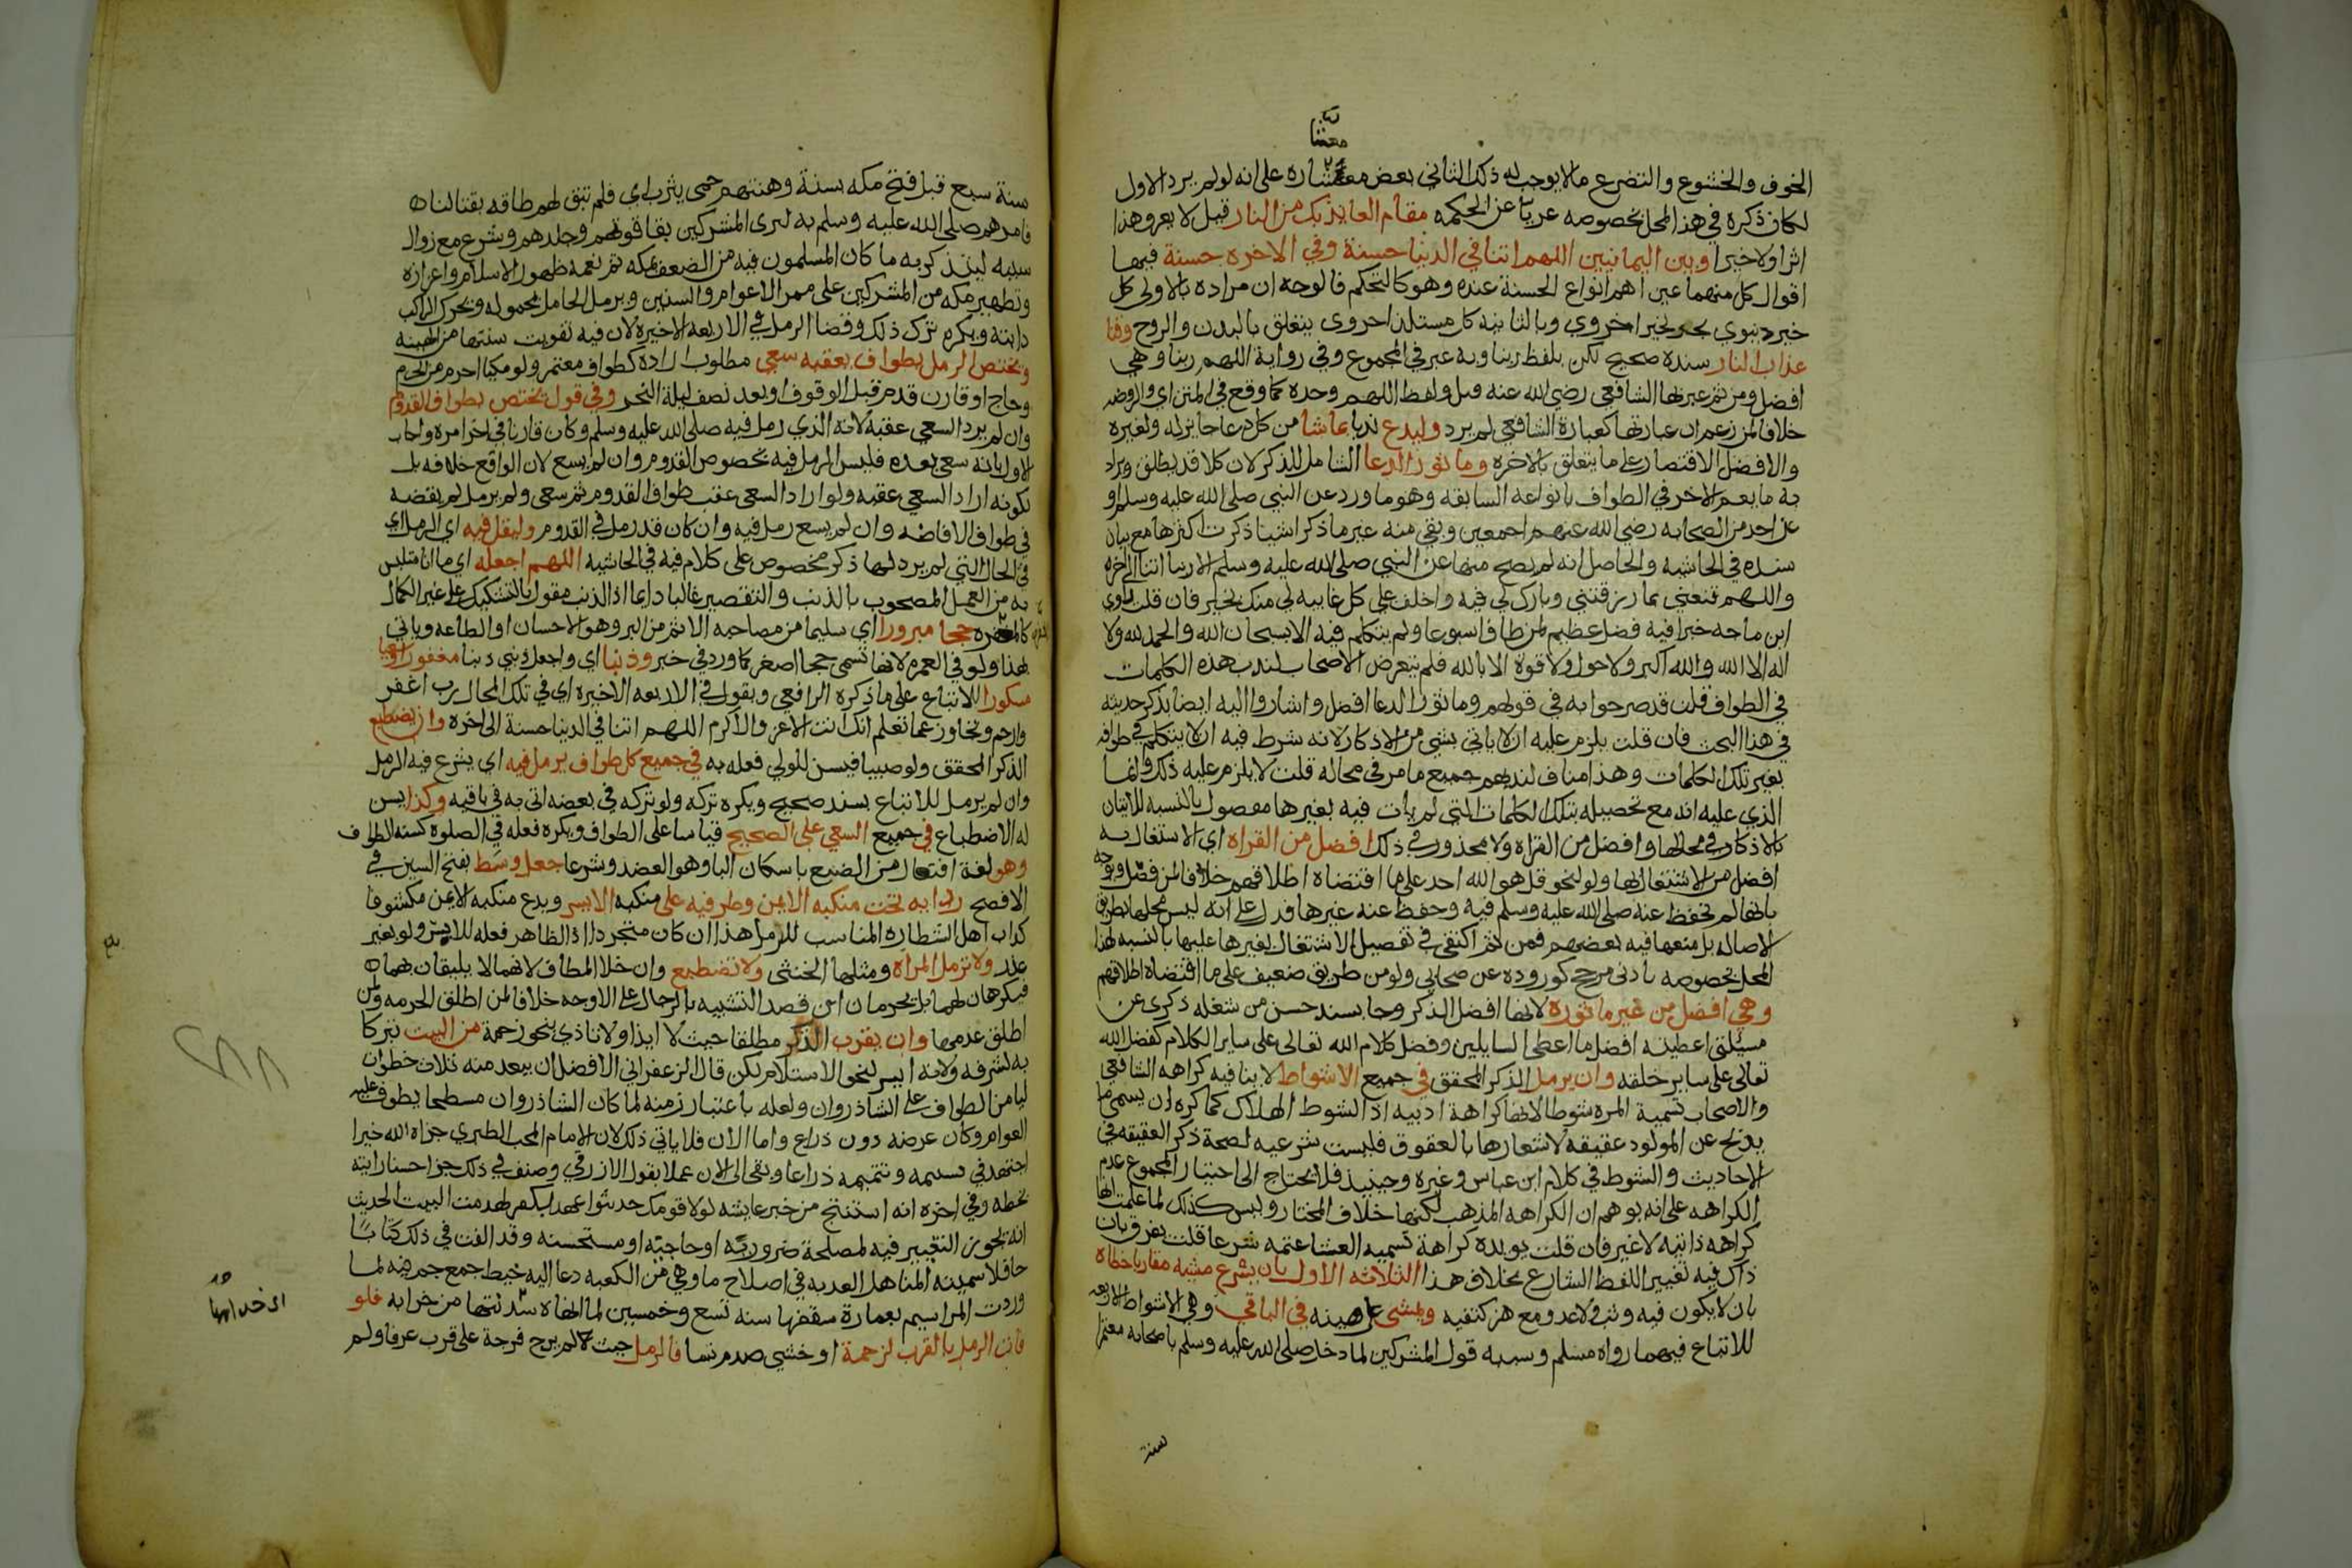 معشا
الخوف والخشوع والتضرع ما لا يوجب له ذلك الثاني بعض معشاره على انه لو لم يرد الاول
لكان ذكره في هذا المحل بخصوصه عريا عن الحكمه مقام العايذ بك من النار قيل لا يعرو هذا
اثرا ولا خبرا وبين اليمانيين اللهم اتنا في الدنيا حسنة وفي الاخره حسنة فيهما
اقوال كل منهما عين اهم انواع الحسنة عنده وهو كالتحكم فالوجه ان مراده بالاولى كل
خير دنيوي يجر لخير اخروي وبالثانيه كل مستلذ اخروي يتعلق بالبدن والروح وقنا
عذاب النار سنده صحيح لكن بلفظ ربنا وبه عبر في المجموع وفي رواية اللهم ربنا وهي
افضل ومن ثم عبر بها الشافعي رضي الله عنه ولفظ اللهم وحده كما وقع في المتن اي والروضه
خلافا لمن زعم ان عبارتها كعبارة الشافعي لم يرد وليدع ندبا بما شا من كل دعا جايز له ولغيره
والافضل الاقتصار على ما يتعلق بالاخره وماثور الدعا الشامل للذكر لان كلا قد يطلق ويراد
به ما يعم الاخر في الطواف بانواعه السابقه وهو ما ورد عن النبي صلى الله عليه وسلم او
عن احد من الصحابه رضي الله عنهم اجمعين وبقي منه غير ما ذكر اشيا ذكرت اكثرها مع بيان
سنده في الحاشيه والحاصل انه لم يصح منها عن النبي صلى الله عليه وسلم الا ربنا اتنا الى اخره
واللهم قنعني بما رزقتني وبارك لي فيه واخلف علي كل غايبه لي منك بخير فان قلت روي
ابن ماجه خبرا فيه فضل عظيم لمن طاف اسبوعا ولم يتكلم فيه الا بسبحان الله والحمد لله ولا
اله الا الله والله اكبر ولا حول ولا قوة الا بالله فلم يتعرض الاصحاب لندب هذه الكلمات
في الطواف قلت قد صرحوا به في قولهم وماثور الدعا افضل واشاروا اليه ايضا بذكر حديثه
في هذا البحث فان قلت يلزم عليه ان لا ياتي بشي من الاذكار لانه شرط فيه ان لا يتكلم في طوافه
بغير تلك الكلمات وهذا مناف لندبهم جميع ما مر في محاله قلت لا يلزم عليه ذلك وانما
الذي عليه انه مع تحصيله بتلك الكلمات التي لم يات فيه بغيرها مفضول بالنسبه للاتيان
بالاذكار في محالها وافضل من القراه ولا محذور في ذلك افضل من القراه اي الاشتغال به
افضل من الاشتغال بها ولو لنحو قل هو الله احد على ما اقتضاه اطلاقهم خلافا لمن فصل ووجه
بانها لم تحفظ عنه صلى الله عليه وسلم فيه وحفظ عنه غيرها فدل على انه ليس محلها بطريق
الاصاله بل منعها فيه بعضهم فمن ثم اكتفى في تفضيل الاشتغال بغيرها عليها بالنسبه لهذا
المحل بخصوصه بادنى مرجح كوروده عن صحابي ولو من طريق ضعيف على ما اقتضاه اطلاقهم
وهي افضل من غير ماثوره لانها افضل الذكر وجا بسند حسن من شغله ذكري عن
مسئلتي اعطيته افضل ما اعطي السايلين وفضل كلام الله تعالى على ساير الكلام كفضل الله
تعالى على ساير خلقه وان يرمل الذكر المحقق في جميع الاشواط لا ينافيه كراهه الشافعي
والاصحاب تسمية المره شوطا لانها كراهة ادبيه اذ الشوط الهلاك كما كره ان يسمى ما
يذبح عن المولود عقيقه لاشعارها بالعقوق فليست شرعيه لصحة ذكر العقيقه في
الاحاديث والشوط في كلام ابن عباس وغيره وحينيذ فلا يحتاج الى اختيار المجموع عدم
الكراهه على انه يوهم ان الكراهه المذهب لكنها خلاف المختار وليس كذلك لما علمت انها
كراهه ذاتيه لا غير فان قلت يويده كراهة تسميه العشا عتمه شرعا قلت يفرق بان
ذاك فيه تغيير اللفظ الشارع بخلاف هذا الثلاثه الاول بان يشرع مشيه مقاربا خطاه
بان لا يكون فيه وثب ولا عدو مع هز كتفيه ويمشي على هينه في الباقي وهي الاشواط الاربعه
للاتباع فيهما رواه مسلم وسببه قول المشركين لما دخل صلى الله عليه وسلم باصحابه معتمرا
سنة
سنة سبع قبل فتح مكه بسنة وهنتهم حمى يثرب اي فلم تبق لهم طاقه بقتالنا
فامرهم صلى الله عليه وسلم به ليرى المشركين بقا قوتهم وجلدهم وشرع مع زوال
سببه ليتذكر به ما كان المسلمون فيه من الضعف بمكه ثم نعمه ظهور الاسلام واعزازه
وتطهير مكه من المشركين على ممر الاعوام والسنين ويرمل الحامل بمحموله ويحرك الراكب
دابته ويكره ترك ذلك وقضا الرمل في الاربعه الاخيره لان فيه تفويت سنتها من الهينه
ويختص الرمل بطواف يعقبه سعي مطلوب اراده كطواف معتمر ولو مكيا احرم من الحرم
وحاج او قارن قدم قبل الوقوف او بعد نصف ليلة النحر وفي قول يختص بطواف القدوم
وان لم يرد السعي عقبه لانه الذي رمل فيه صلى الله عليه وسلم وكان قارنا في اخر امره واجاب
الاول بانه سعى بعده فليس الرمل فيه لخصوص القدوم وان لم يسع لان الواقع خلافه بل
لكونه اراد السعي عقبه ولو اراد السعي عقب طواف القدوم ثم سعى ولم يرمل لم يقضه
في طواف الافاضه وان لم يسع رمل فيه وان كان قد رمل في القدوم وليقل فيه اي الرمل اي
في الحال التي لم يرد لها ذكر مخصوص على كلام فيه في الحاشيه اللهم اجعله اي ما انا متلبس
به من العمل المصحوب بالذنب والتقصير غالبا دايما اذ الذنب مقول بالتشكيك على غير الكمال
كالمغفره حجا مبرورا اي سليما من مصاحبه الاثم من البر وهو الاحسان او الطاعه وياتي
بهذا ولو في العمره لانها تسمى حجا اصغر كما ورد في خبر وذنبا اي واجعل ذنبي ذنبا مغفورا وسعيا
مشكورا للاتباع على ما ذكره الرافعي ويقول في الاربعه الاخيره اي في تلك المحال رب اغفر
وارحم وتجاوز عما تعلم انك انت الاعز والاكرم اللهم اتنا في الدنيا حسنة الى اخره وان يضطبع
الذكر المحقق ولو صبيا فيسن للولي فعله به في جميع كل طواف يرمل فيه اي يشرع فيه الرمل
وان لم يرمل للاتباع بسند صحيح ويكره تركه ولو تركه في بعضه اتى به في باقيه وكذا يسن
له الاضطباع في جميع السعي على الصحيح قياسا على الطواف ويكره فعله في الصلوه كسنه الطواف
وهو لغة افتعال من الضبع باسكان البا وهو العضد وشرعا جعل وسط بفتح السين في
الافصح ردايه تحت منكبه الايمن وطرفيه على منكبه الايسر ويدع منكبه الايمن مكشوفا
كداب اهل الشطاره المناسب للرمل هذا ان كان متجردا اذ الظاهر فعله للابس ولو لغير
عذر ولا ترمل المراه ومثلها الخنثى ولا تضطبع وان خلا المطاف لانهما لا يليقان بهما
فيكرهان لهما بل يحرمان ان قصدا التشبيه بالرجال على الاوجه خلافا لمن اطلق الحرمه ولمن
اطلق عدمها وان يقرب الذكر مطلقا حيث لا ايذا ولا تاذي بنحو زحمة من البيت تبركا
به لشرفه ولانه ايسر لنحو الاستلام لكن قال الزعفراني الافضل ان يبعد منه ثلاث خطوات
ليامن الطواف على الشاذروان ولعله باعتبار زمنه لما كان الشاذروان مسطحا يطوف عليه
العوام وكان عرضه دون ذراع واما الان فلا ياتي ذلك لان الامام المحب الطبري جزاه الله خيرا
اجتهد في تسنيمه وتتميمه ذراعا وبقي الى الان عملا بقول الازرقي وصنف في ذلك جزا حسنا رايته
بخطه وفي اخره انه استنتج من خبر عايشه لولا قومك حديثوا عهد بكفر لهدمت البيت الحديث
انه يجوز التغيير فيه لمصلحة ضروريه او حاجيه او مستحسنه وقد الفت في ذلك كتابا
حافلا سميته المناهل العذبه في اصلاح ما وهى من الكعبه دعا اليه خبط جمع جم فيه لما
وردت المراسيم بعمارة سقفها سنه تسع وخمسين لما انهاه سدنتها من خرابه فلو
فات الرمل بالقرب لزحمة او خشي صدم نسا فالرمل حيث لم يرج فرجة على قرب عرفا ولم